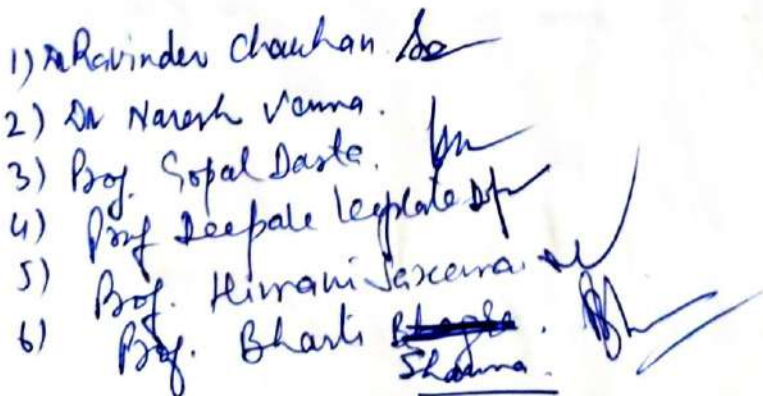 1) Dr Ravinder Chauhan
2) Dr Naresh Verma.
3) Prof. Gopal Daste.
4) Prof Deepale
5) Prof. Himani Saxena.
6) Prof. Bharti
Sharma.